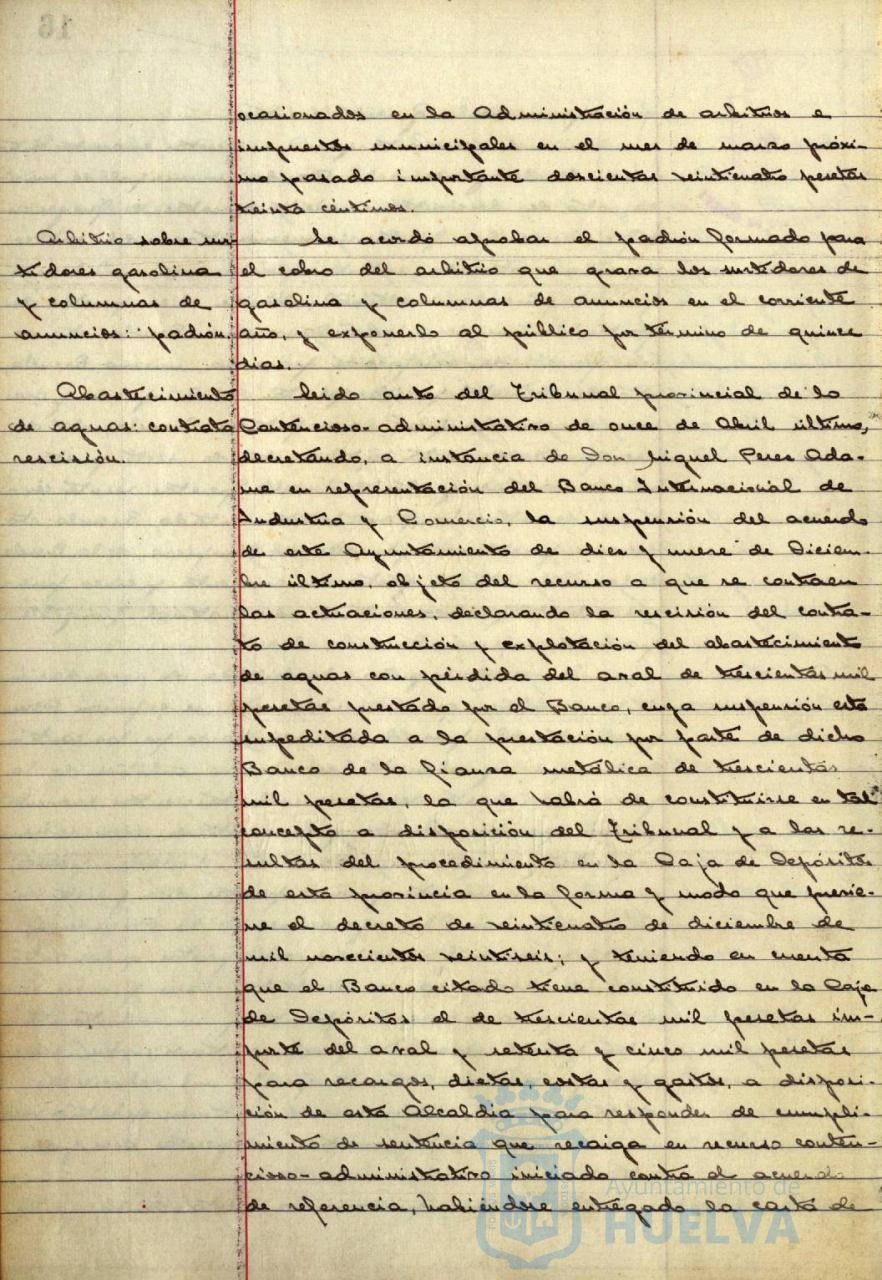 16
ocasionados en la Administración de arbitrios e
impuestos municipales en el mes de marzo próxi-
mo pasado importante doscientas veinticuatro pesetas
treinta céntimos.
Arbitrio sobre sur-
tidores gasolina
y columnas de
anuncios: padrón.
Se acordó aprobar el padrón formado para
el cobro del arbitrio que grava los surtidores de
gasolina y columnas de anuncios en el corriente
año, y exponerlo al público por término de quince
días.
Abastecimiento
de aguas: contrata
rescisión.
Leido auto del Tribunal provincial de lo
Contencioso-administrativo de once de Abril último,
decretando, a instancia de Don Miguel Perez Ada-
me en representación del Banco Internacional de
Industria y Comercio, la suspensión del acuerdo
de este Ayuntamiento de diez y nueve de Diciem-
bre último, objeto del recurso a que se contraen
las actuaciones, declarando la rescisión del contra-
to de construcción y explotación del abastecimiento
de aguas con pérdida del aval de trescientas mil
pesetas prestado por el Banco, cuya suspensión está
supeditada a la prestación por parte de dicho
Banco de la fianza metálica de trescientas
mil pesetas, la que habrá de constituirse en tal
concepto a disposición del Tribunal y a las re-
sultas del procedimiento en la Caja de Depósitos
de esta provincia en la forma y modo que previe-
ne el decreto de veinticuatro de diciembre de
mil novecientos veintiseis; y teniendo en cuenta
que el Banco citado tiene constituido en la Caja
de Depósitos el de trescientas mil pesetas im-
porte del aval y setenta y cinco mil pesetas
para recargos, dietas, costas y gastos, a disposi-
ción de esta Alcaldia para responder de cumpli-
miento de sentencia que recaiga en recurso conten-
cioso-administrativo iniciado contra el acuerdo
de referencia, habiéndose entregado la carta de
Ayuntamiento de
HUELVA